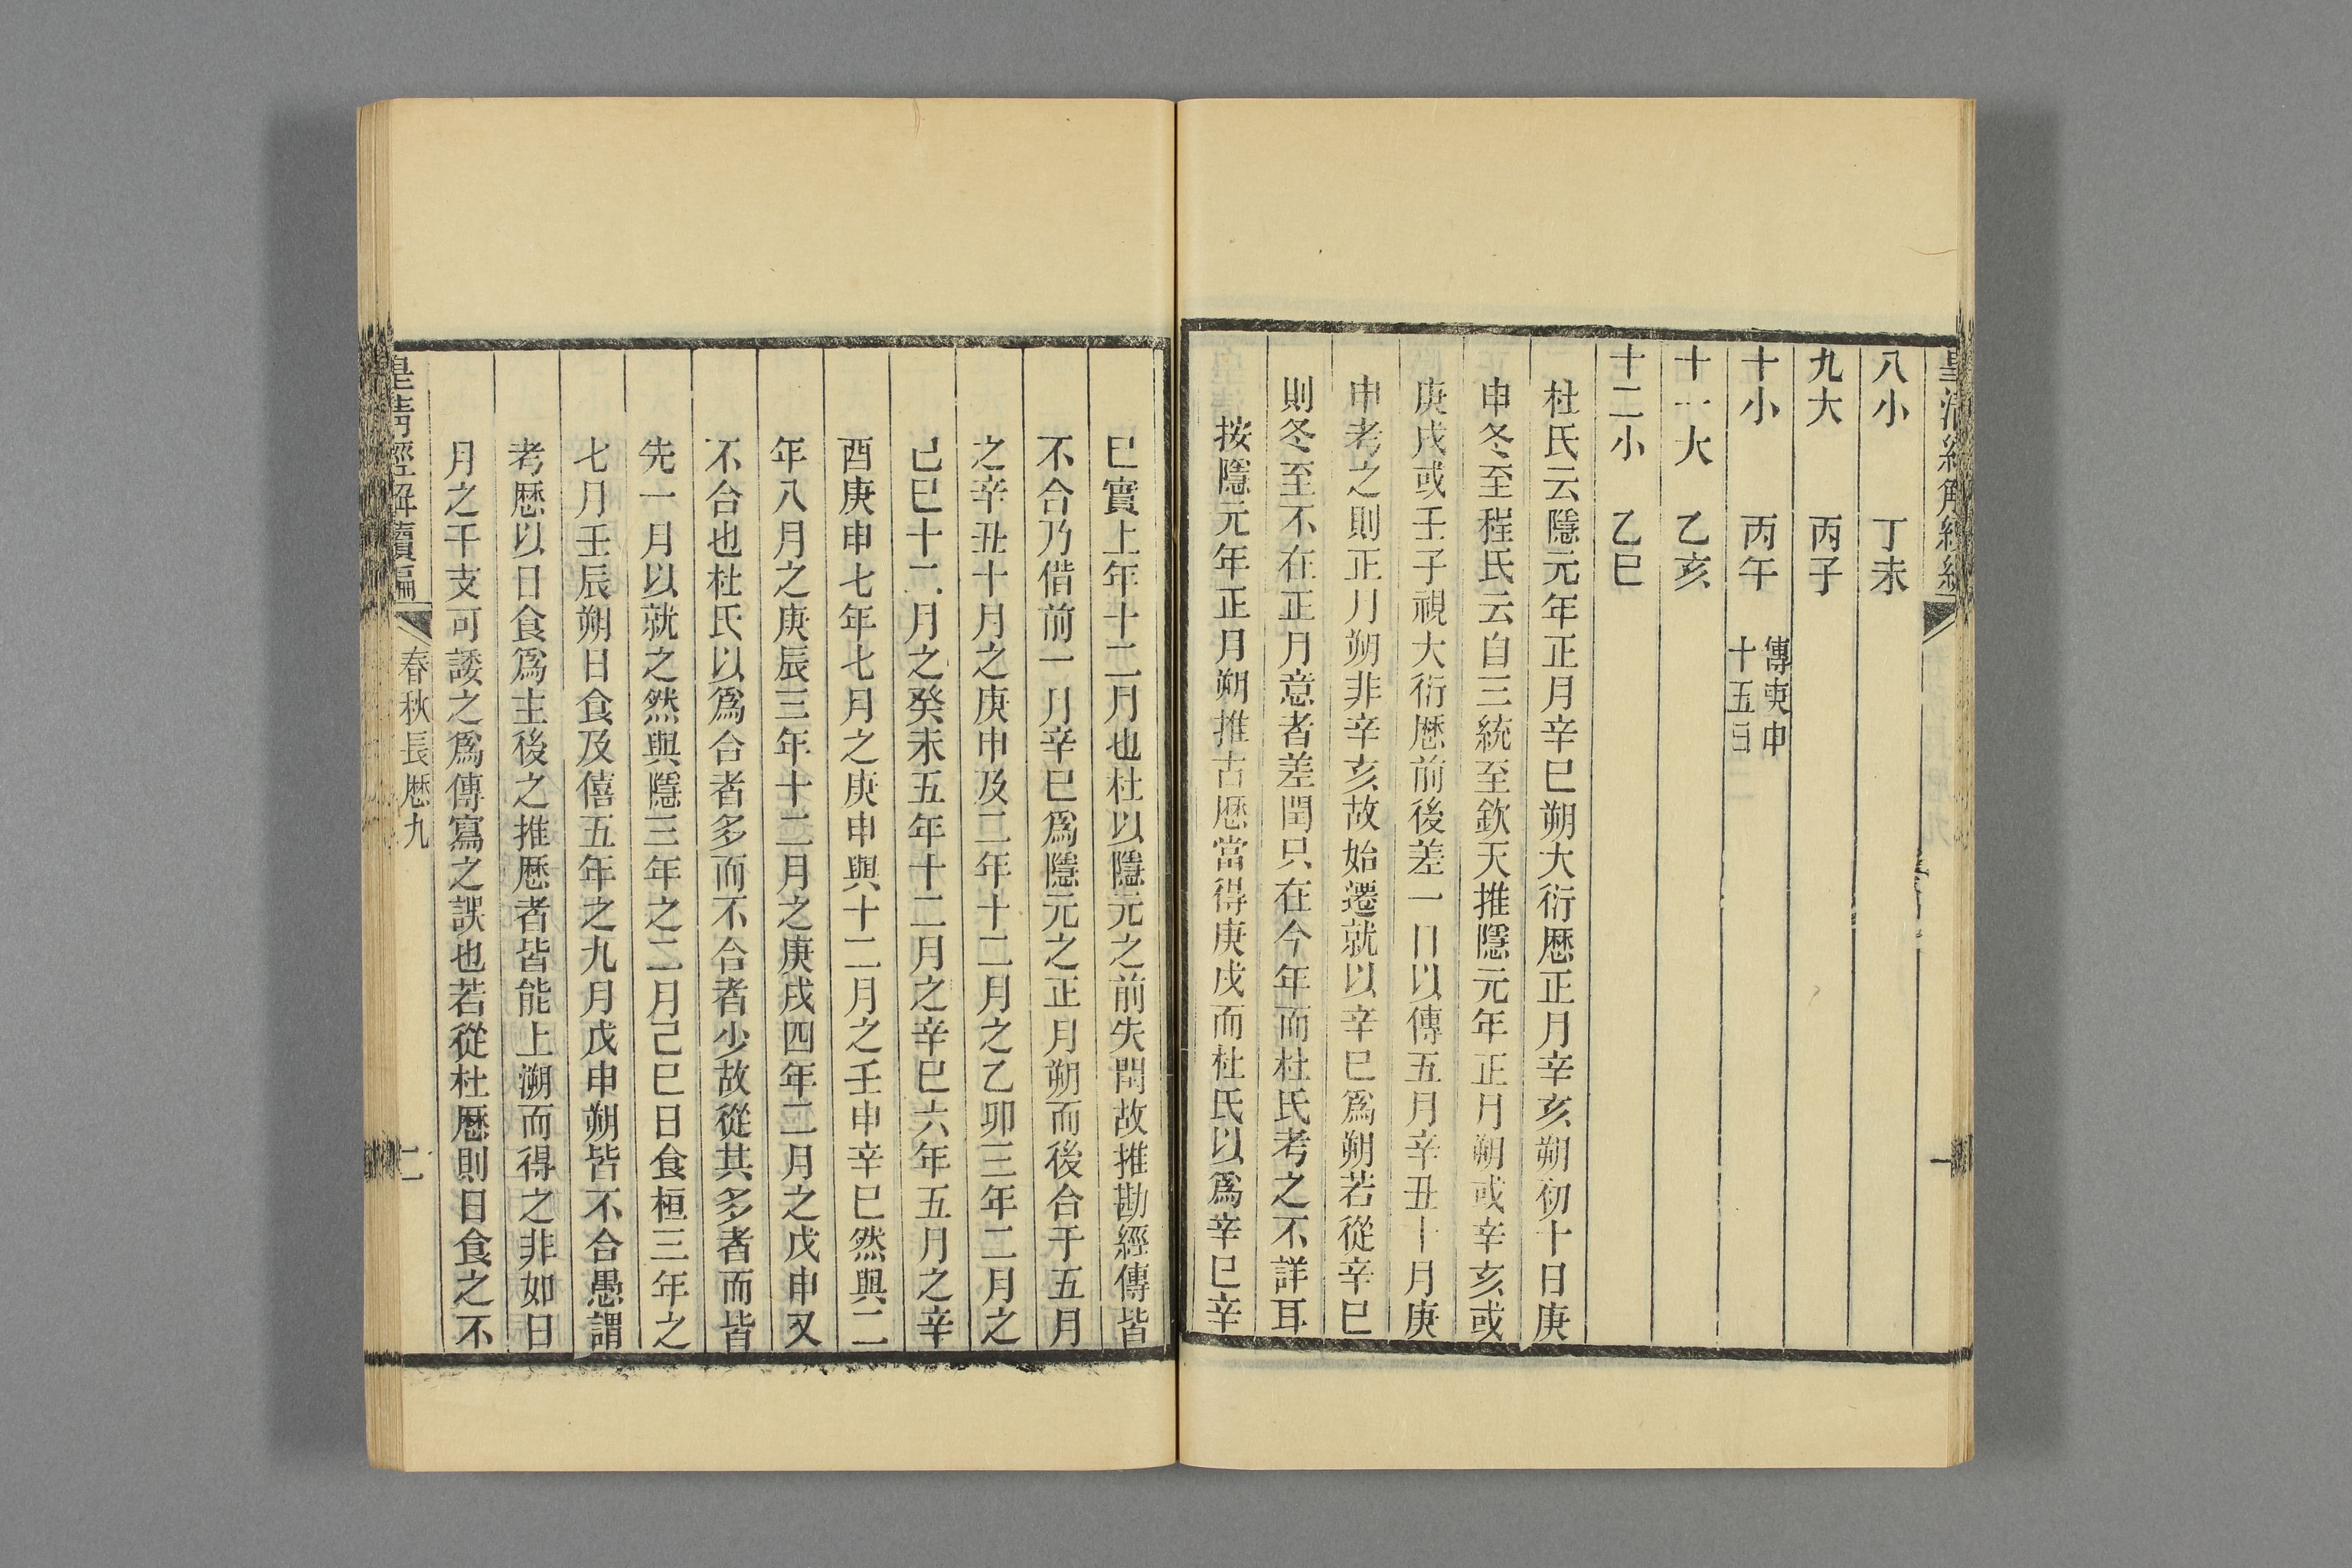 皇清經解續編
八小　丁未
九大　丙子
十小　丙午　傳庚申
十五日
十一大　乙亥
十二小　乙巳
杜氏云隱元年正月辛巳朔大衍厯正月辛亥朔初十日庚
申冬至程氏云自三統至欽天推隱元年正月朔或辛亥或
庚戌或壬子視大衍厯前後差一日以傳五月辛丑十月庚
申考之則正月朔非辛亥故始遷就以辛巳爲朔若從辛巳
則冬至不在正月意者差閏只在今年而杜氏考之不詳耳
按隱元年正月朔推古厯當得庚戌而杜氏以爲辛巳辛
一
巳實上年十二月也杜以隱元之前失閏故推勘經傳皆
不合乃借前一月辛巳爲隱元之正月朔而後合于五月
之辛丑十月之庚申及二年十二月之乙卯三年二月之
己巳十二月之癸未五年十二月之辛巳六年五月之辛
酉庚申七年七月之庚申與十二月之壬申辛巳然與二
年八月之庚辰三年十二月之庚戌四年二月之戊申又
不合也杜氏以爲合者多而不合者少故從其多者而皆
先一月以就之然與隱三年之二月己巳日食桓三年之
七月壬辰朔日食及僖五年之九月戊申朔皆不合愚謂
考厯以日食爲主後之推厯者皆能上溯而得之非如日
月之干支可諉之爲傳寫之誤也若從杜厯則日食之不
皇清經解續編
春秋長厯九
二